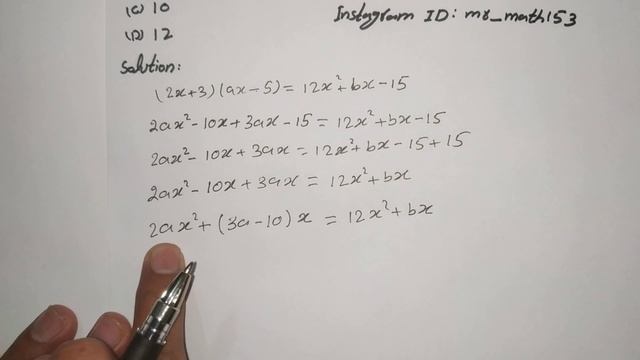 (C) 10
Instagram ID: mr_math153
(D) 12
Solution:
(2x+3)(ax-5)=12x²+bx-15
2ax²-10x+3ax-15=12x²+bx-15
2ax²-10x+3ax=12x²+bx-15+15
2ax²-10x+3ax=12x²+bx
2ax²+(3a-10)x=12x²+bx